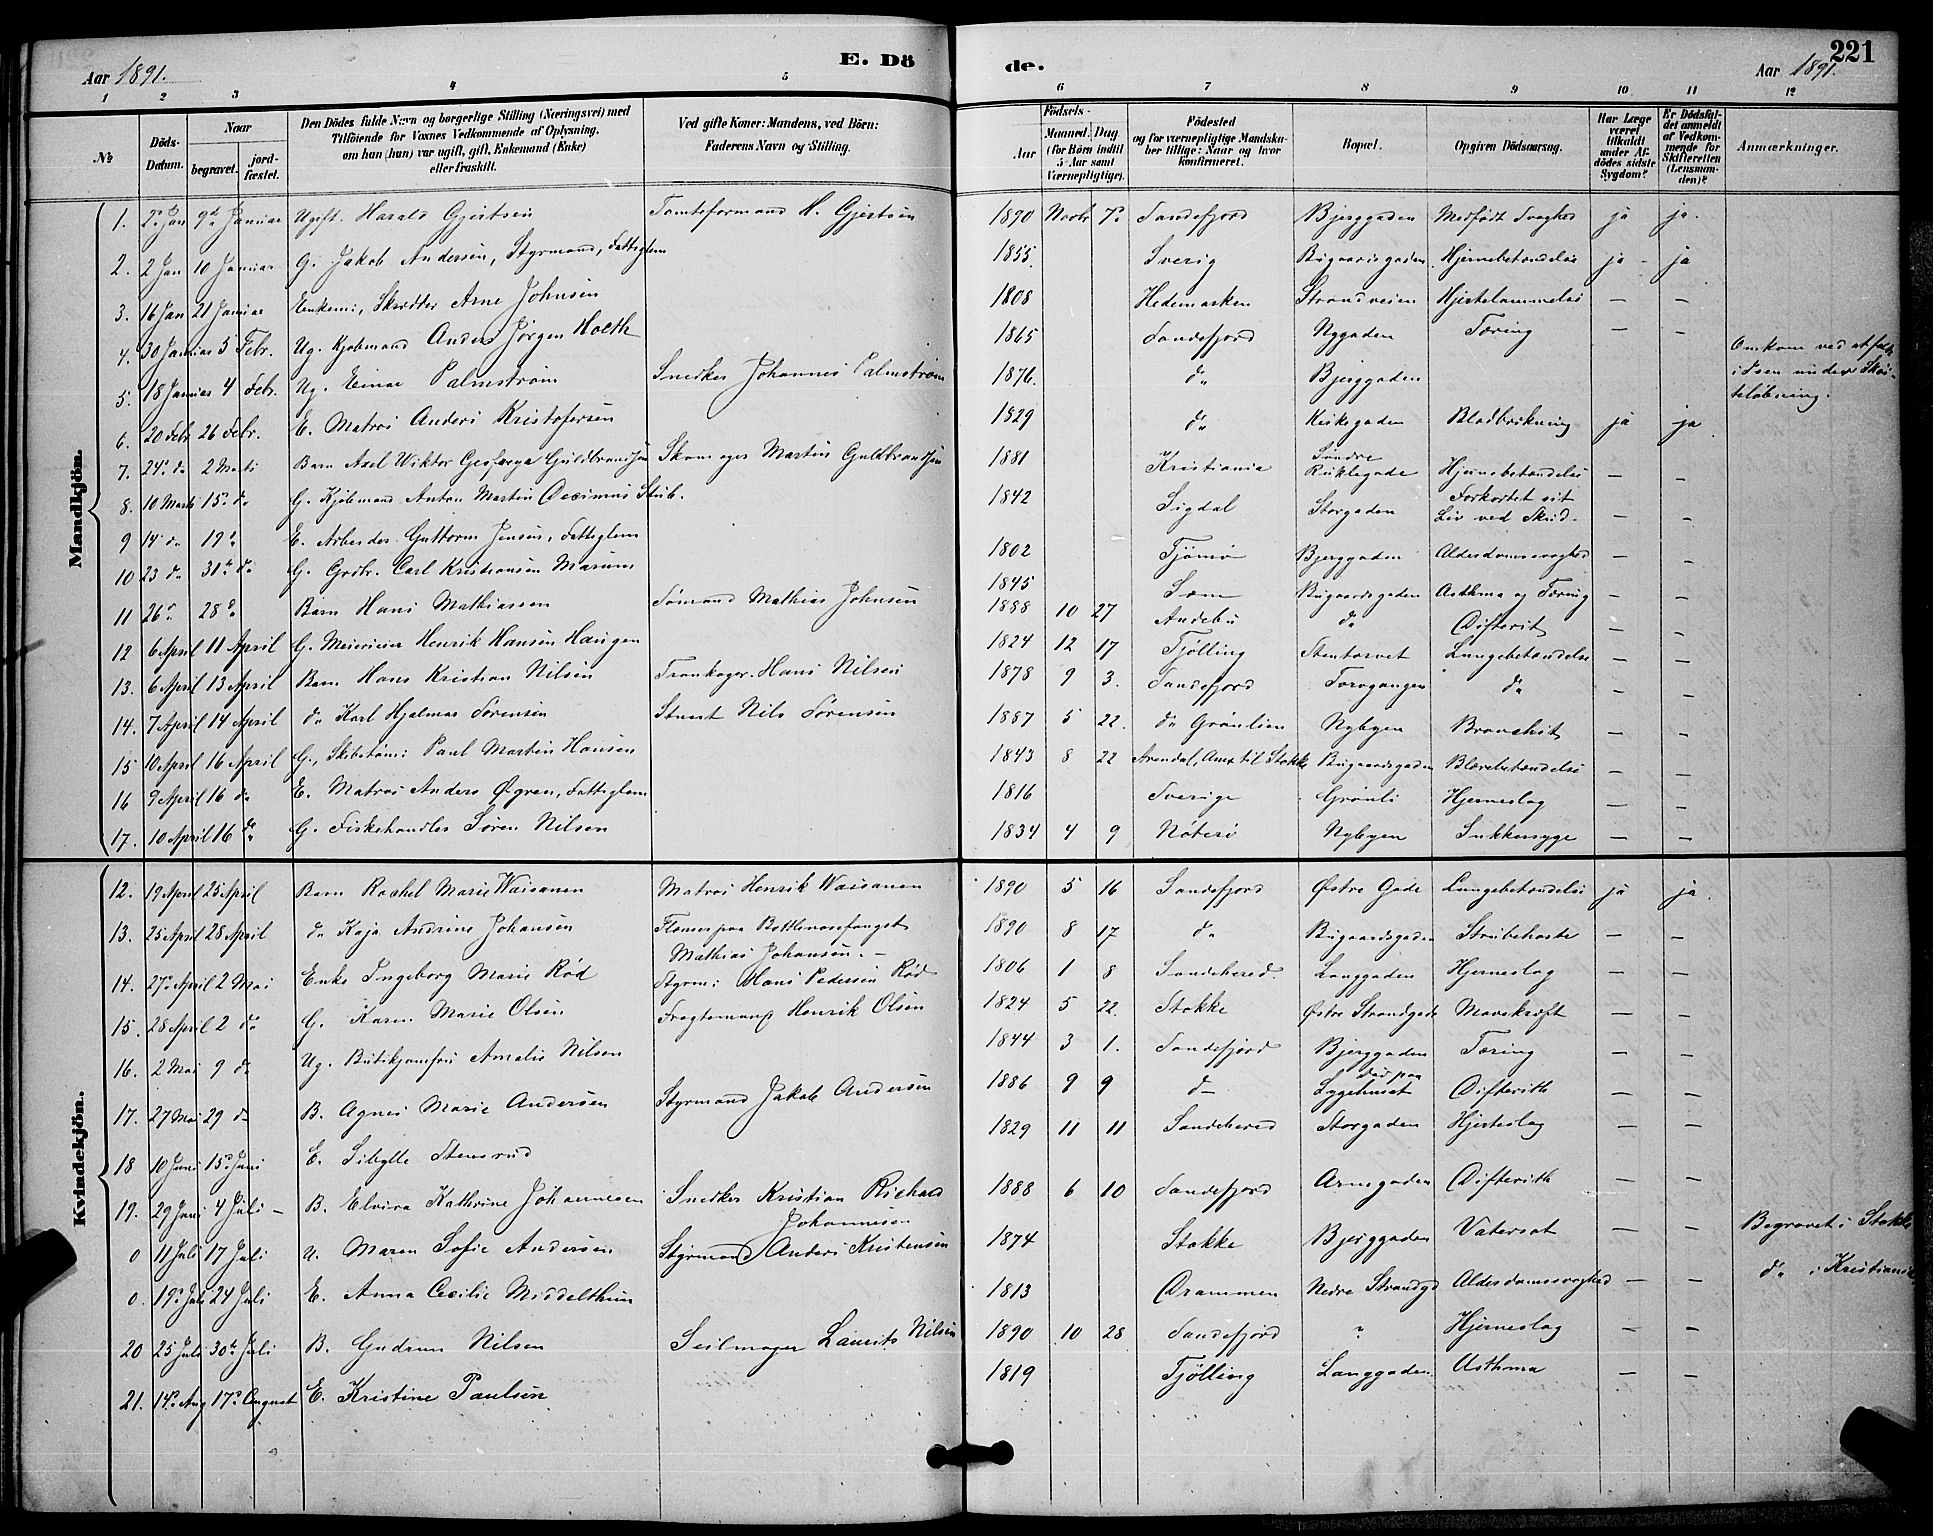 221
Aar 1891. E. Dö de. Aar 1891.
1 2 3 4 5 6 7 8 9 10 11 12
№
Døds-Datum.
Naar begravet. jordfæstet.
Den Dödes fulde Navn og borgerlige Stilling (Næringsvei) med Tilföiende for Voxnes Vedkommende af Oplysning, om han (hun) var ugift, gift, Enkemand (Enke) eller fraskilt.
Ved gifte Koner: Mandens, ved Börn: Faderens Navn og Stilling.
Födsels-
Aar Maaned. Dag (for Börn indtil 5 Aar samt Værnepligtige).
Födested og for værnepligtige Mandskaber tillige: Naar og hvor konfirmeret.
Bopæl.
Opgiven Dödsaarsag.
Har Læge været tilkaldt under Afdödes sidste Sygdom?
Er Dödsfaldet anmeldt af Vedkommende for Skifteretten (Lensmanden)?
Anmærkninger.
Mandkjön.
1. 2 Jan 9 Januar Ugift. Harald Gjertsen Tomteformand H. Gjertsen 1890 Novbr 7 Sandefjord Bjerggaden Medfödt Svaghed ja ja.
2. 2 Jan 10 Januar G. Jakob Andersen, Styrmand, Fattiglem 1855. Sverig Bugaardsgaden. Hjernebetændelse ja - ja
3. 16 Jan 21 Januar Enkem., Skrædder Arne Johnsen 1808 Hedemarken Strandveien Hjertelammelse — —
4. 30 Januar 5 Febr. Ug. Kjøbmand Anders Jørgen Holth 1865 Sandefjord Nygaden Tæring — —
5. 18 Januar 4 Febr. Ug. Einar Palmstrøm Snedker Johannes Palmstrøm 1876. do Bjerggaden Omkom ved at falde i Isen under Skøiteløbning.
6. 20 Febr 26 Febr. E. Matros Anders Kristofersen 1829 do Kirkegaden Blodbrækning ja ja
7. 24 do 2 Marts Barn Axel Wiktor Guldbrandsen Skomager Martin Guldbrandsen 1881 Kristiania Søndre Hjernebetændelse — —
8. 10 Marts 15 do G. Kjøbmand Anton Martin Decimus Stub. 1842 Sigdal Storgaden Forkortet sit Liv ved Skud. — —
9 14 do 19 E. Arbeider Guttorm Jensen, Fattiglem 1802 Tjömö Bjerggaden Alderdomssvaghed — —
10 23 do 31 do G. Grdbr. Carl Kristiansen Marum 1845 Sem Bugaardsgaden Asthma og Tæring — —
11 26 28 Barn Hans Mathiassen Sömand Mathias Johnsen 1888 10 27 Andebu do Difterit — —
12 6 April 11 April G. Meierieier Henrik Hansen Haugen 1824 12 17 Tjølling Stentorvet Lungebetændelse — —
13. 6 April 13 April Barn Hans Kristian Nilsen Trankoger Hans Nilsen 1878 9 3. Sandefjord Torvgangen do — —
14. 7 April 14 April do Karl Hjalmar Sørensen Stuert Nils Sørensen 1887 5 22. do Grönlien Nybyen Bronchit — —
15 10 April 16 April G., Paul Martin Hansen 1843 8 22 Arendal, til Stokke Bugaardsgaden Blærebetændelse — —
16 9 April 16 do E. Matros Anders Øgren, Fattiglem 1816 Sverige Grönli Hjerneslag — —
17. 10 April 16 do G. Fiskehandler Søren Nilsen 1834 4 9 Nöterö Nybyen Sukkersyge — —
Kvindekjön.
12. 19 April 25 April Barn Rachel Marie Waisanen Matros Henrik Waisanen 1890 5 16 Sandefjord Østre Gade Lungebetændelse ja ja.
13. 25 April 28 April do Kaja Andrine Johansen Flenser paa Bottlenosefangst Mathias Johansen. 1890 8 17 do Bugaardsgaden Strubehoste — —
14. 27 April 2 Mai Enke Ingeborg Marie Rød Styrm: Hans Pedersen Rød 1806 1 8 Sandehered. Langgaden Hjerneslag — —
15. 28 April 2 do G. Karen Marie Olsen Fragtemand Henrik Olsen 1824 5 22. Stokke Østre Strandgade Mavekræft — —
16. 2 Mai 9 do Ug. Butikjomfru Amalie Nilsen 1844 3 1. Sandefjord Bjerggaden Tæring — —
17. 27 Mai 29 do B. Agnes Marie Andersen Styrmand Jakob Andersen 1886 9 9 do død paa Sygehuset Difterith — —
18 10 Juni 15 Juni E. Sibylle Stensrud 1829 11 11 Sandehered Storgaden Hjerteslag — —
19. 29 Juni 4 Juli B. Elvira Kathrine Johannesen Snedker Kristian Richard Johannesen 1888 6 10 Sandefjord Arnegaden Difterith — —
0 11 Juli 17 Juli U. Maren Sofie Andersen Styrmand Anders Kristensen 1874 Stokke Bjerggaden Vatersot — — Begravet i Stokke
0. 19 Juli 24 Juli E. Anna Cecilie Middelthun 1813 Drammen Nedre Strandgd Alderdomssvaghed — — do i Kristiania
20 25 Juli 30 Juli B. Gudrun Nilsen Seilmager Laurits Nilsen 1890 10 28 Sandefjord ? Hjerneslag — —
21. 14 Aug 17 August E. Kristine Paulsen 1819 Tjølling Langgaden. Asthma — —